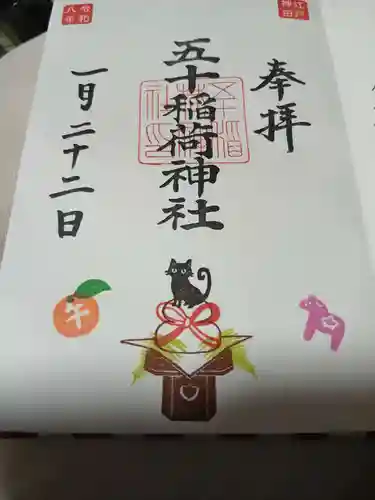 江戸
神田
奉拝
五十稲荷神社
令和
八年
一月二十二日
午